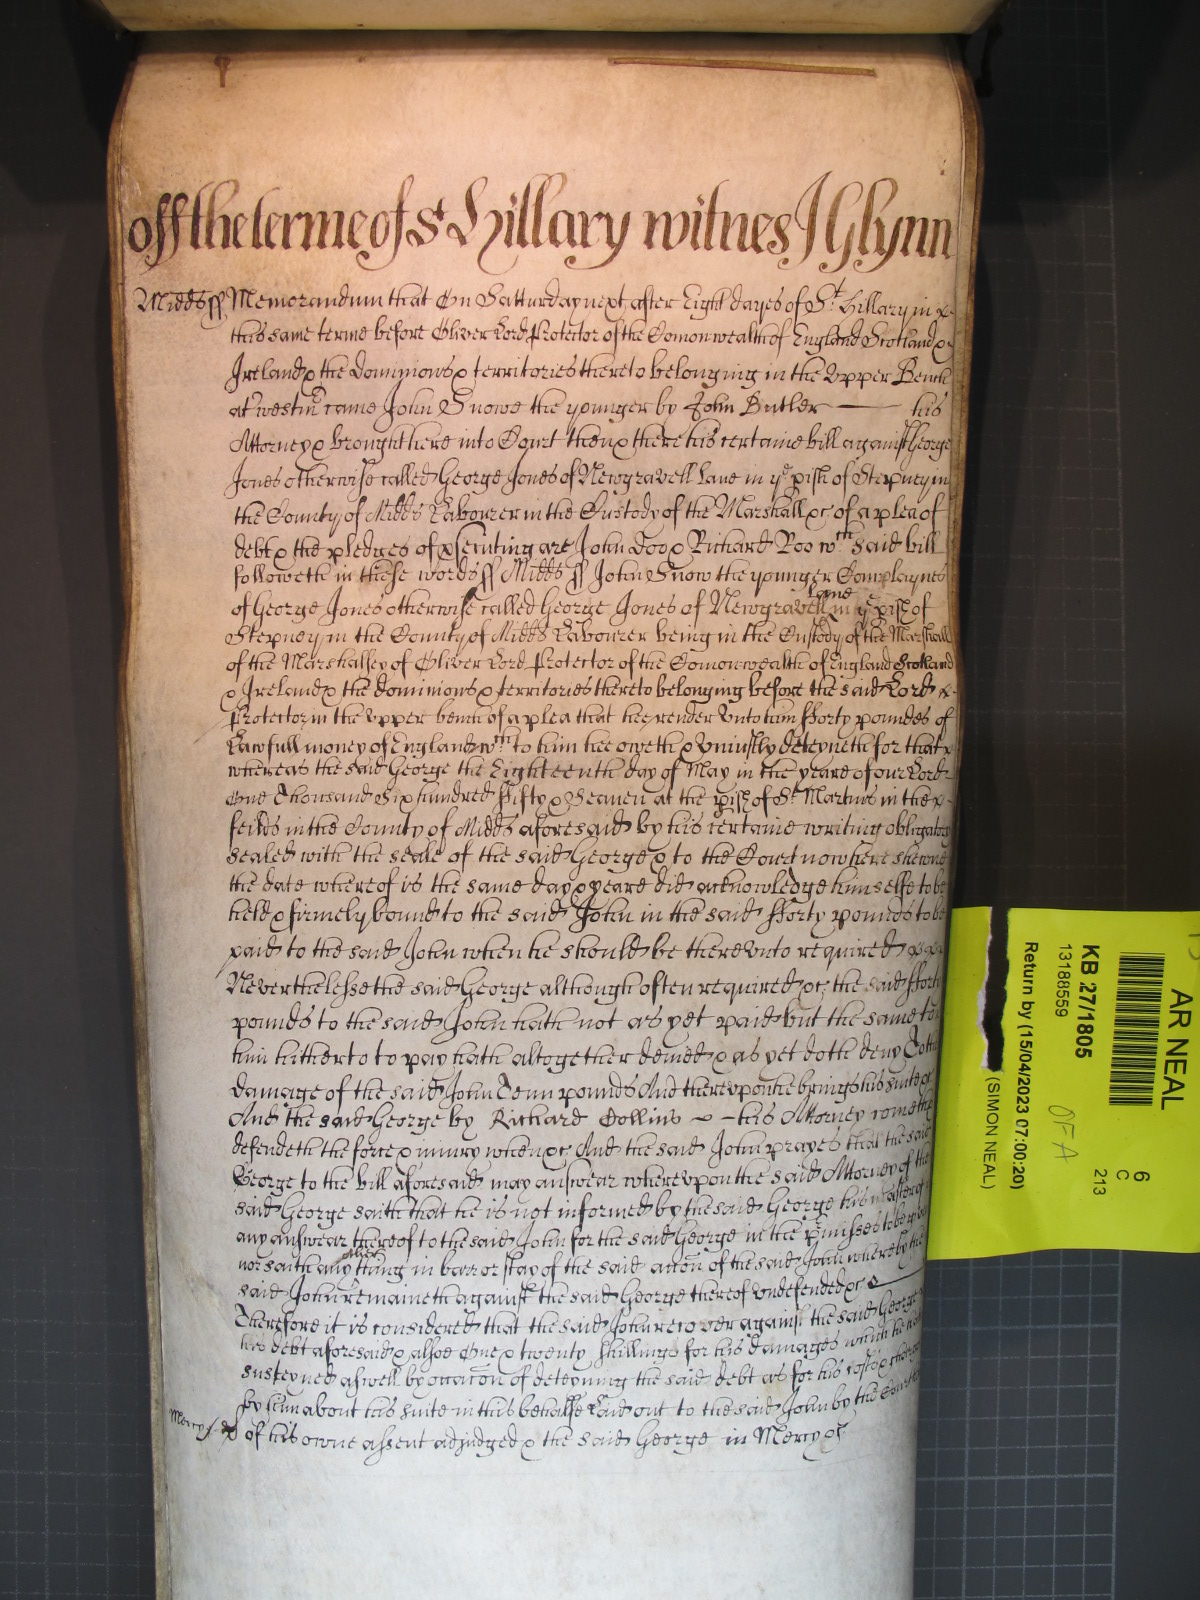 off the terme of St Hillary witnes J Glynn
Midds ss Memorandum that On Satturday next after Eight dayes of St. Hillary in &
this same terme before Oliver Lord Protector of the Comonwealth of England Scotland &
Ireland & the Dominions & territories thereto belonging in the Upper Bench
at Westmr came John Snowe the younger by John Butler his
Attorney & brought here into Court then & there his certaine bill against George
Jones otherwise called George Jones of Newgravell Lane in ye pish of Stepney in
the County of Midds Labourer in the Custody of the Marshall &c of a plea of
debt & the pledges of psecuting are John Doo & Richard Roo wth said bill
followeth in these words ss Midds ss John Snow the younger Complaynes
of George Jones otherwise called George Jones of Newgravell Lane in ye pish of
Stepney in the County of Midds Labourer being in the Custody of the Marshall
of the Marshallsey of Oliver Lord Protector of the Comonwealth of England Scotland
& Ireland & the dominions & territories thereto belonging before the said Lord &
Protector in the upper bench of a plea that hee render unto him fforty poundes of
Lawfull money of England wth to him hee oweth & uniustly deteyneth for that &
whereas the said George the Eighteenth day of May in the yeare of our Lord
One Thousand Six hundred ffifty & Seaven at the pish of St. Martins in the &
feilds in the County of Midds aforesaid by his certaine writing obligatory
sealed with the seale of the said George & to the Court now here shewne
the date whereof is the same day & yeare did acknowledge himselfe to be
held & firmely bound to the said John in the said fforty pounds to be
paid to the said John when he should be thereunto required
Neverthelesse the said George although often required &c the said fforty
pounds to the said John hath not as yet paid but the same to
him hitherto to pay hath altogether denied & as yet doth deny To the
damage of the said John Tenn pounds And thereupon he brings his suite &c
And the said George by Richard Collins his Attorney cometh &
defendeth the force & iniury when &c And the said John prayes that the said
George to the bill aforesaid may answear whereupon the said Attorney of the
said George saith that he is not informed by the said George his Master of
any answear thereof to the said John for the said George in the pmisses to be given
nor saith any other thing in barr or stay of the said accon of the said John whereby the
said John remaineth against the said George thereof undefended &c
Therefore it is considered that the said John recover against the said George
his debt aforesaid & alsoe One & twenty shillings for his damages which he hath
susteyned aswell by occacon of deteyning the said debt as for his costs & charges
by him about his suite in this behalfe Laid out to the said John by the Court here
Mercy
of his owne assent adjudged & the said George in Mercy &c
AR NEAL
KB 27/1805
13188559
Return by (15/04/2023 07:00:20)
(SIMON NEAL)
6
C
213